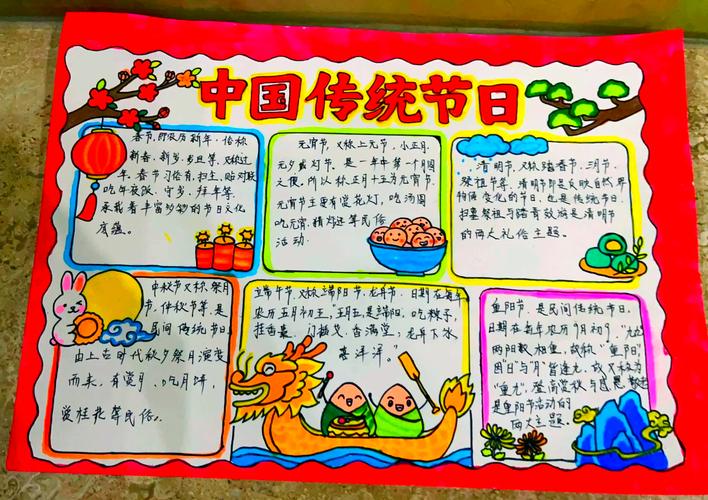 中国传统节日
春节,即农历新年,俗称
新春、新岁、岁旦等,又称过
年。春节习俗有,扫尘、贴对联
吃年夜饭、守岁、拜年等。
承载着丰富妙妙的节日文化
底蕴。
元宵节,又称上元节,小正月、
元夕或灯节。是一年中第一个月圆
之夜。所以称正月十五为元宵节。
元宵节主要有赏花灯,吃汤圆
吃元宵,猜灯谜等民俗
活动.
清明节,又称踏春节,三月节.
祭祖节等.清明节即是反映自然界
物候变化的节日,也是传统节日.
扫墓祭祖与踏青效游是清明节
的两大礼俗主题。
中秋节又称祭月
节,仲秋节等,是
民间传统节日
由上古时代秋夕祭月演变
而来,有赏月、吃月饼,
赏桂花等民俗..
端午节,又称端阳节,龙舟节,日期在每年
农历五月初五,五月五,是端阳。吃粽子,
挂香囊.门插艾,香满堂,龙舟下水
喜洋洋。"
重阳节,是民间传统节日,
日期在每年农历9月初9,"九九
两阳数相重,故称"重阳",
因日与月皆逢九,故又称为
"重九",登高赏秋与感恩敬老
是重阳节活动的
两大主题。